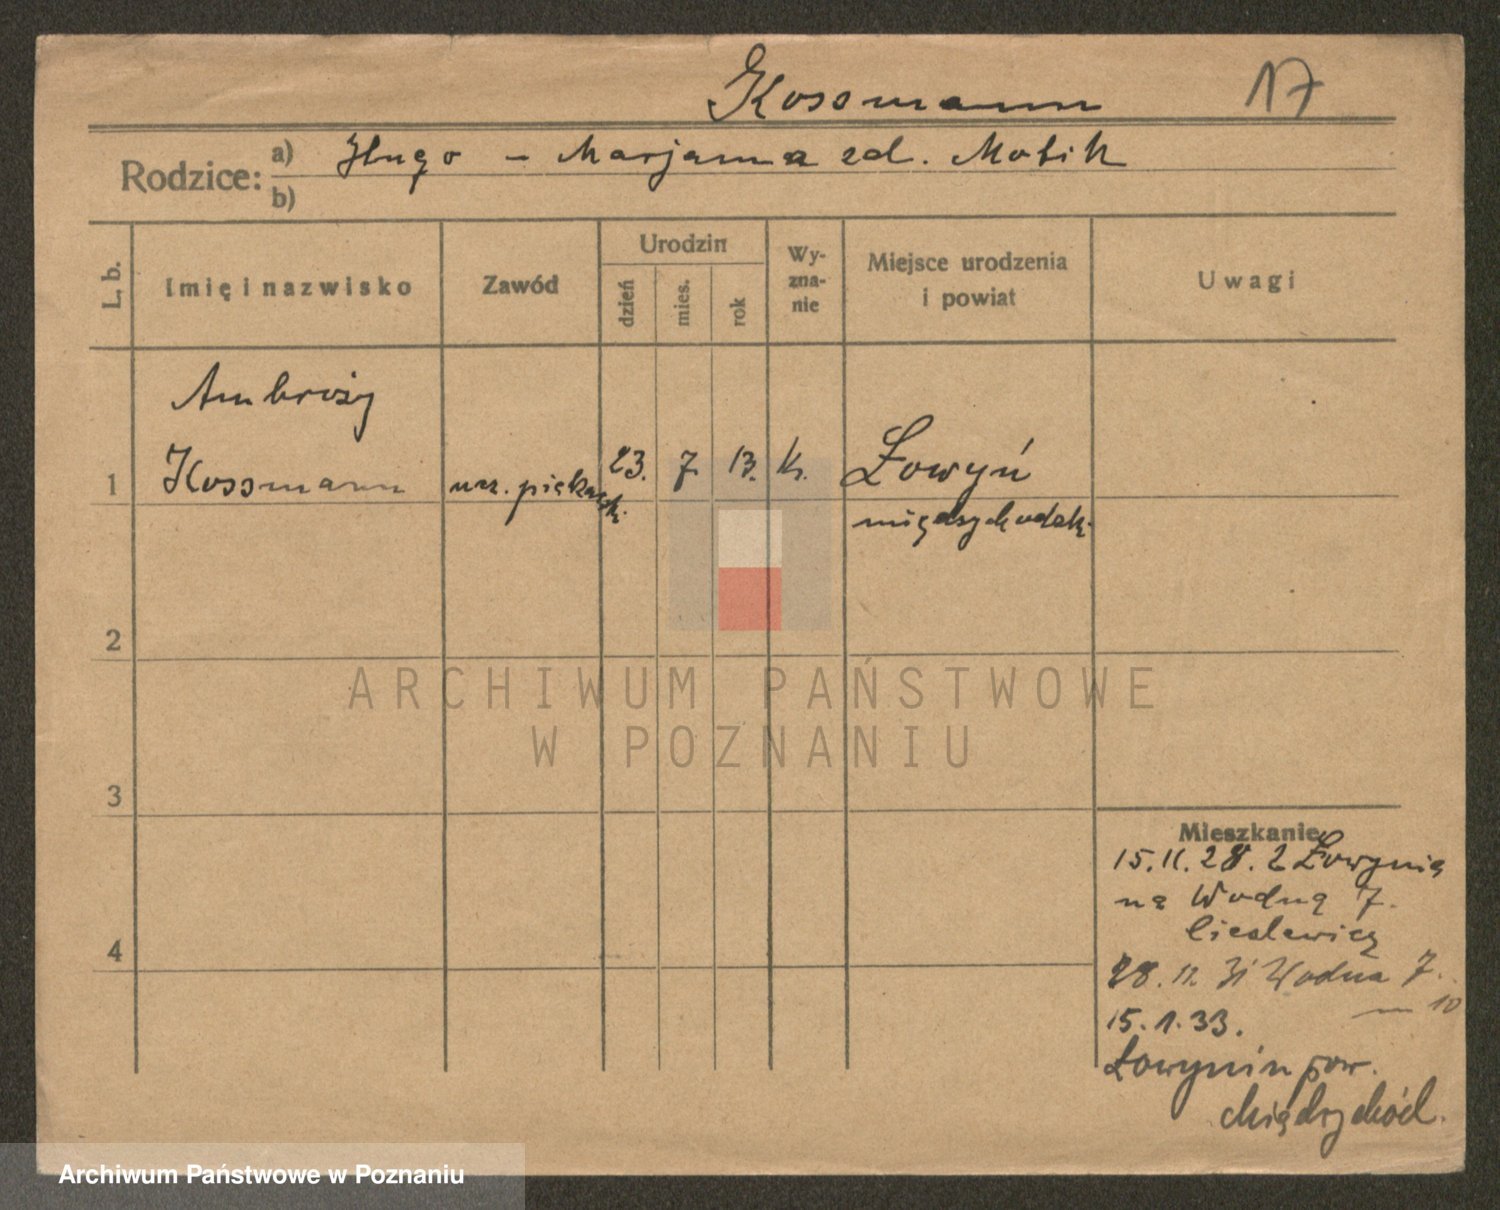 Kossmann 17
Rodzice: a) Hugo - Marjanna zd. Motik
b)
L. b. Imię i nazwisko Zawód Urodzin dzień mies. rok Wy-zna-nie Miejsce urodzenia i powiat Uwagi
Ambroży
1 Kossmann ucz. piekarski 23. 7. 13. k. Łowyń
międzychodzki
2
ARCHIWUM PAŃSTWOWE
W POZNANIU
3
Mieszkanie
15.11.28. z Łowynia
na Wodną 7.
Cieslewicz
4
28.11. 31 Wodna 7.
10
15.1.33.
pow.
Międzychód.
Archiwum Państwowe w Poznaniu